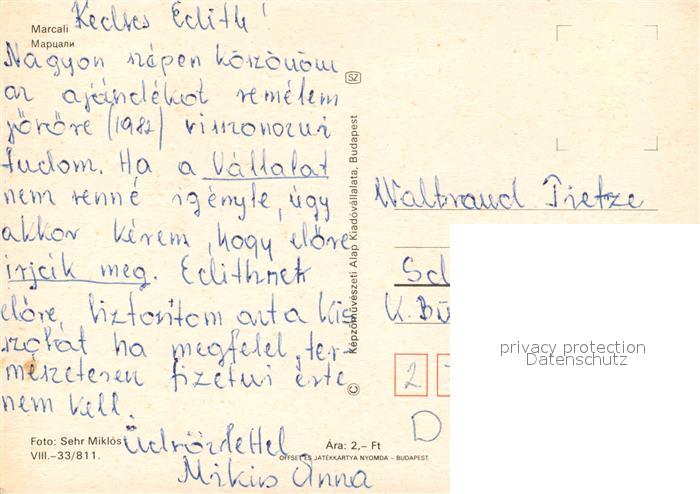 Marcali
Марцали
Kedves Edith!
Nagyon szépen köszönöm
az ajándékot remélem
jövőre (1982) viszonozni
tudom. Ha a Vállalat
nem venné igénybe, úgy
akkor kérem, hogy előre
írják meg. Edithnek
előre, biztosítom azt a kis
szobát ha megfelel, ter-
mészetesen fizetni érte
nem kell.
Üdvözlettel
Mikus Anna
Foto: Sehr Miklós
VIII.–33/811.
Ára: 2,– Ft
OFFSET ÉS JÁTÉKKÁRTYA NYOMDA – BUDAPEST.
© Képzőművészeti Alap Kiadóvállalata, Budapest
SZ
Waltraud Pietze
K. Bü
2
D
privacy protection
Datenschutz